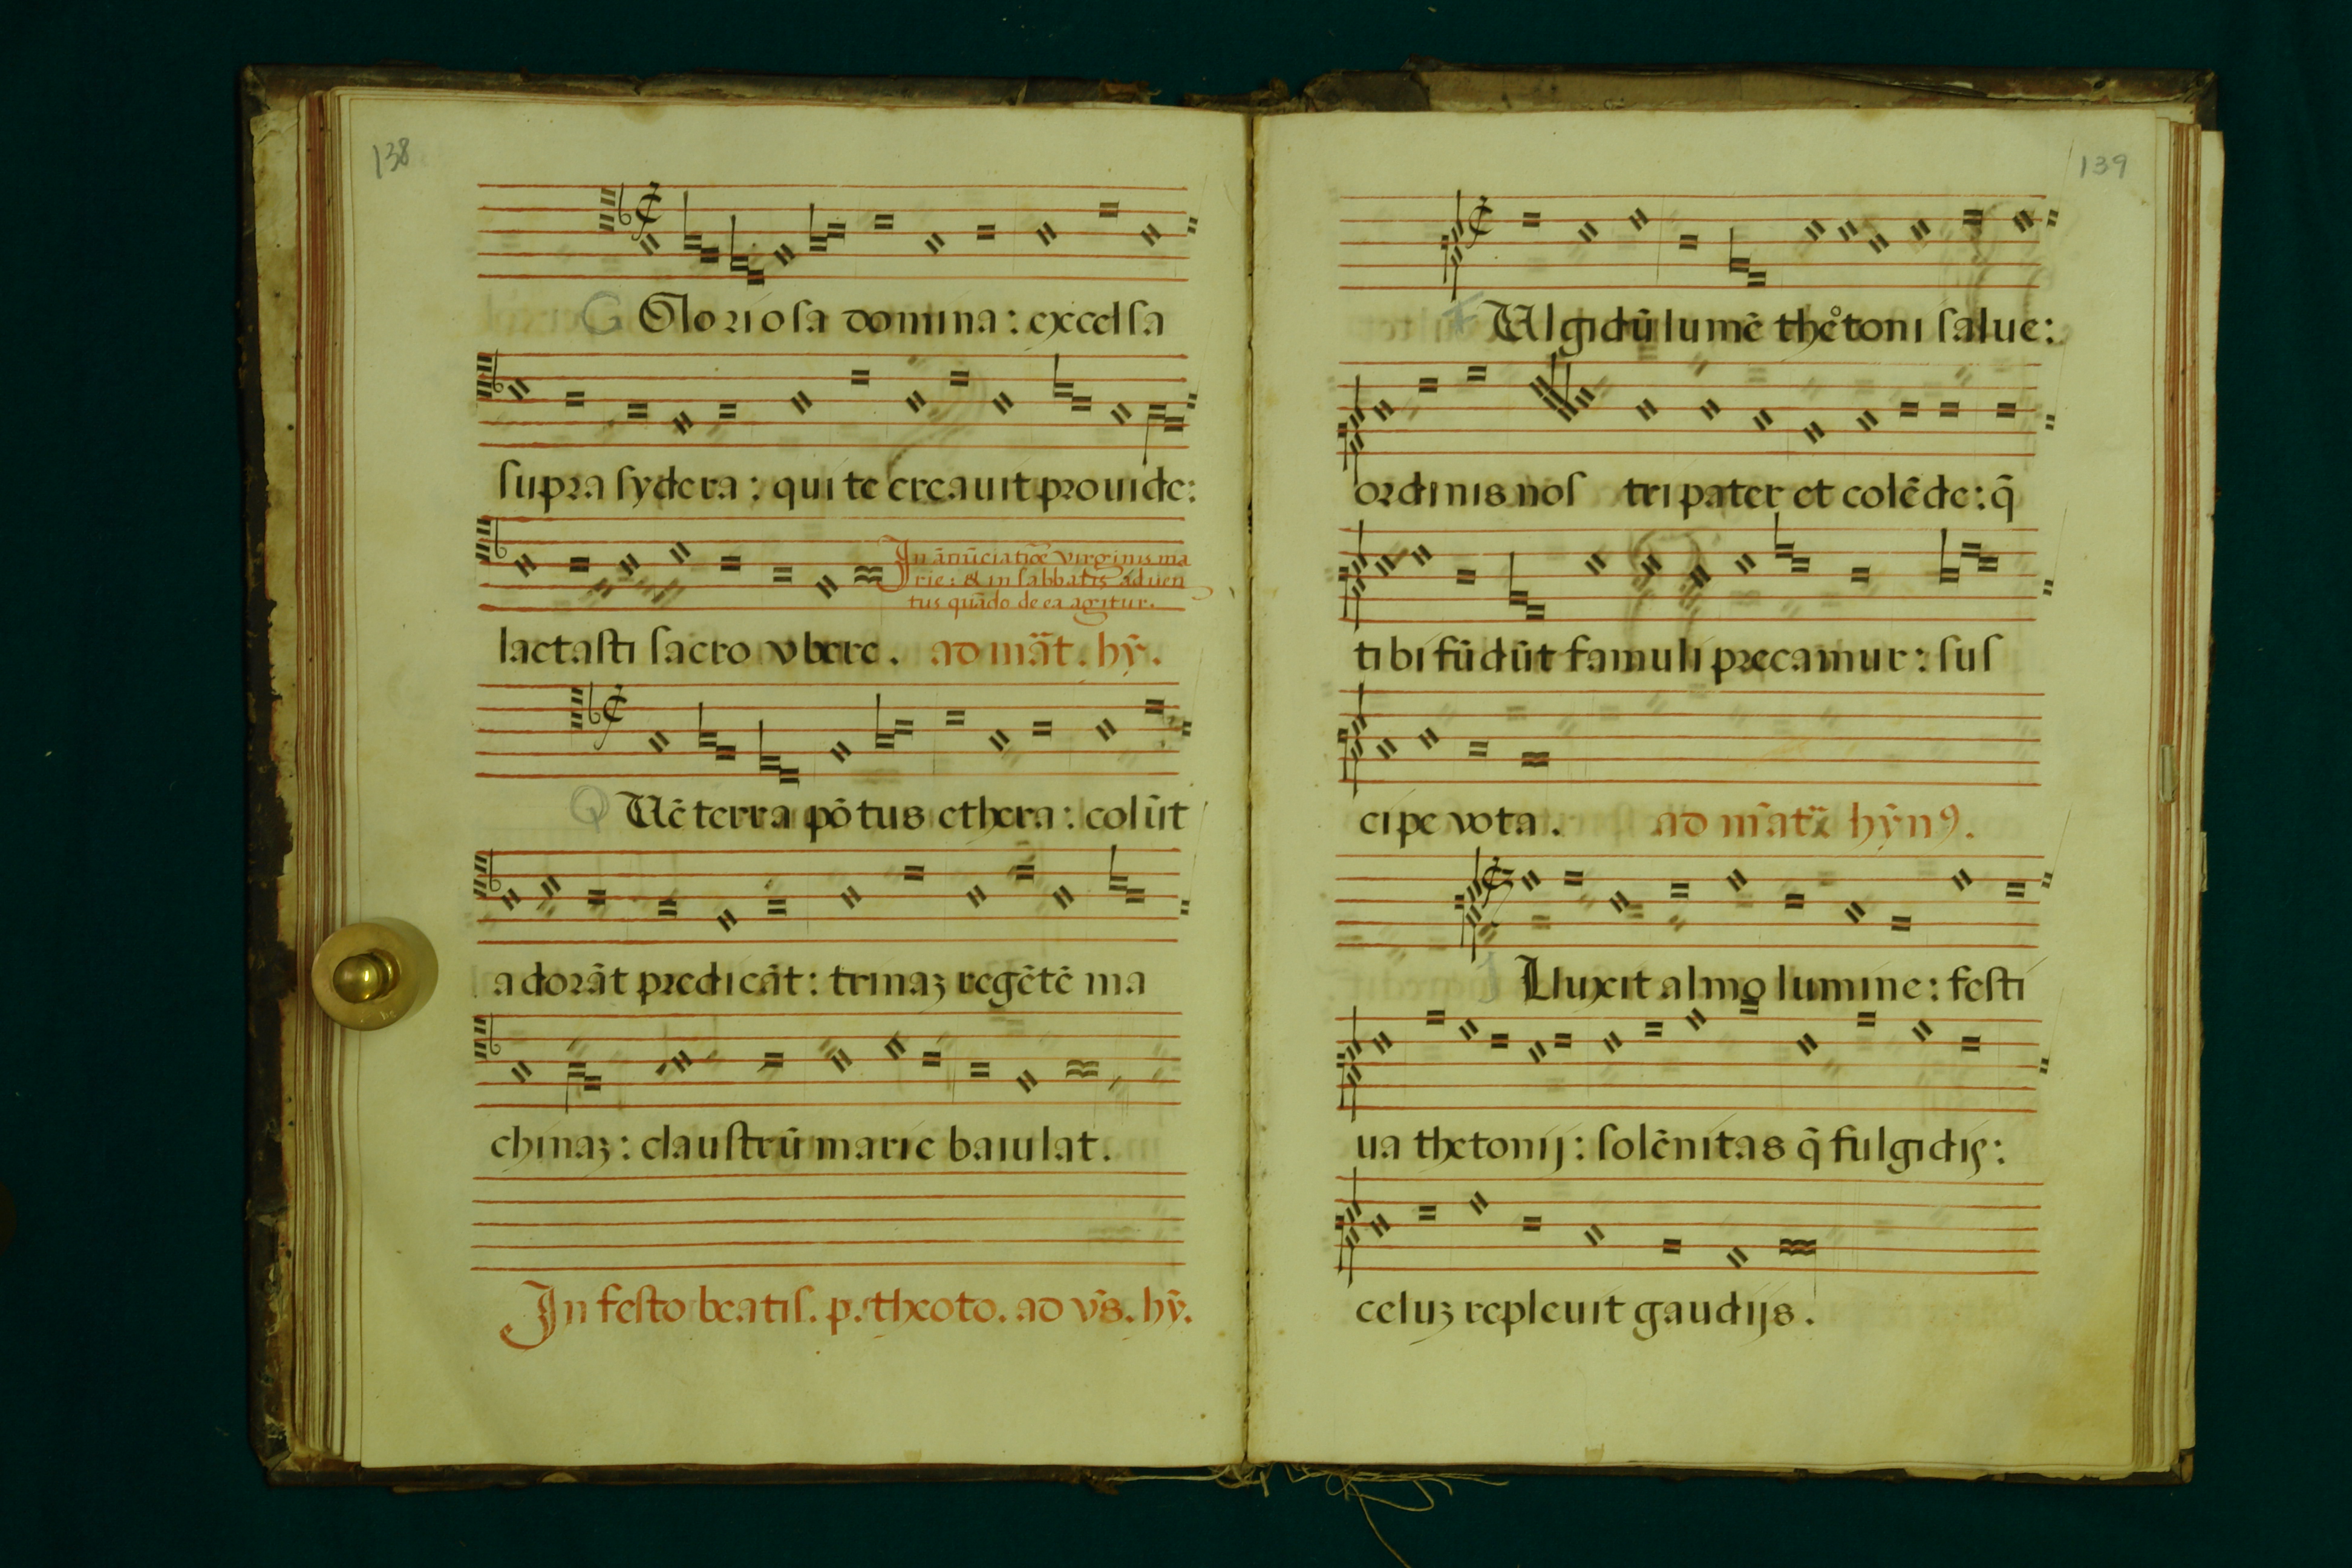 138
G Gloriosa domina: excelsa
supra sydera: qui te creauit prouide:
In ānūciatiōe virginis ma
rie: & in sabbatis aduen
tus quādo de ea agitur.
lactasti sacro vbere. ad māt. hȳ.
Q Uē terra pōtus ethera: colūt
adorāt predicāt: trinaʒ regētē ma
chinaʒ: claustrū marie baiulat.
In festo beatis. p. theoto. ad vs̄. hȳ.
139
F Ulgidū lumē theͦtoni salue:
ordinis nostri pater et colēde: q̄
tibi fūdūt famuli precamur: sus
cipe vota. ad māt hȳn9.
I Lluxit almo lumine: festi
ua thetonij: solēnitas q̄ fulgidis:
celuʒ repleuit gaudijs.